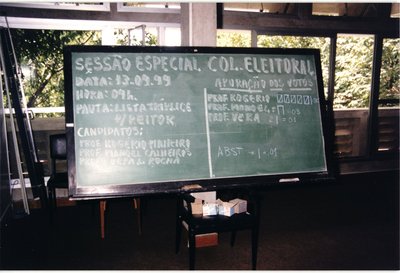 SESSÃO ESPECIAL COL. ELEITORAL
DATA: 13.09.99
HORA: 09h.
PAUTA: LISTA TRÍPLICE
P/ REITOR
CANDIDATOS:
PROF. ROGÉRIO PINHEIRO
PROF. MANOEL CALHEIROS
PROFª VERA L. ROCHA
APURAÇÃO DOS VOTOS
PROF. ROGÉRIO
PROF. MANOEL = 03
PROFª VERA 1 = 01
ABST = 1 = 01